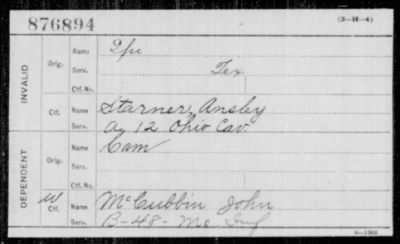 876894
(3-H-4)
INVALID
Orig.
Name
Serv.
Tex
Ctf. No.
Ctf.
Name Starner, Ansby
Serv. A, 12 Ohio Cav.
DEPENDENT
Orig.
Name Cam
Serv.
Ctf. No.
W
Ctf.
Name McCubbin John
Serv. B-48- Mo Inf